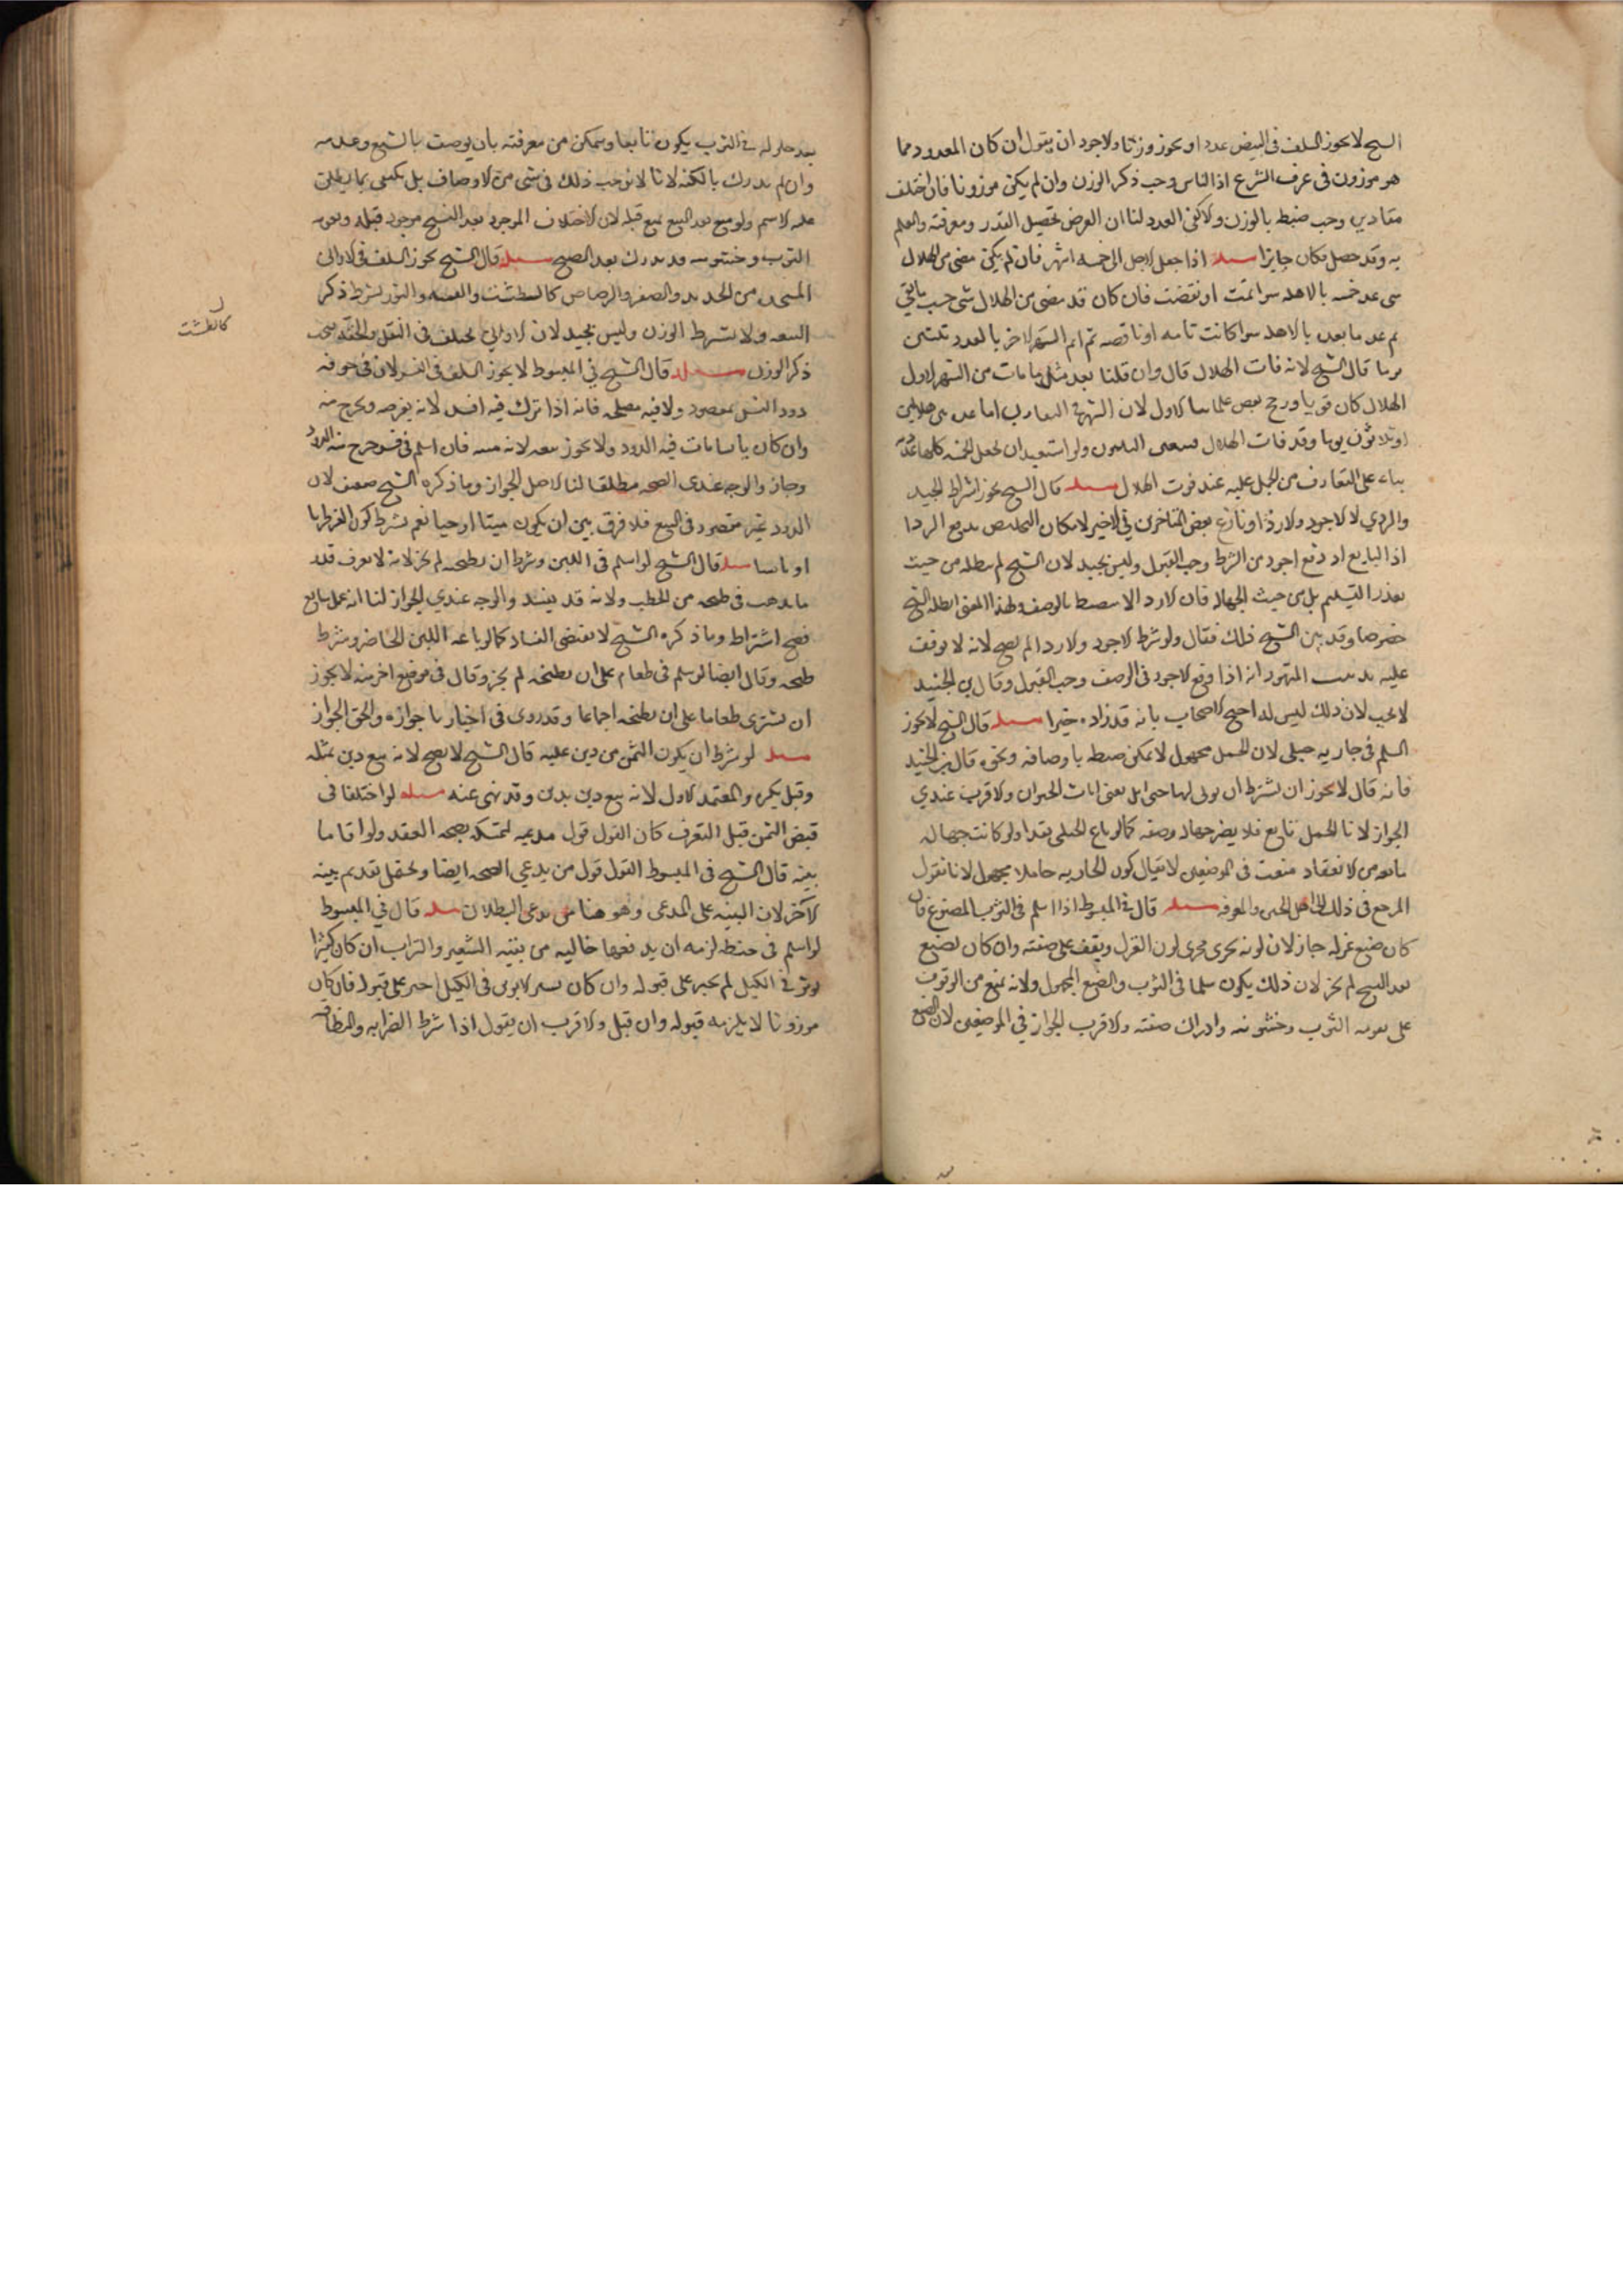 الشيخ لا يجوز السلف فى البيض عددا ويجوز وزنا والاجود ان يقول ان كان المعدود مما
هو موزون فى عرف الشرع اذ الناس وجب ذكر الوزن وان لم يكن موزونا فان اختلف
مقاديره وجب ضبطه بالوزن والا كفى العدد لنا ان الغرض تحصيل القدر ومعرفته والعلم
به وقد حصل فكان جايزا مسله اذا جعل الاجل الى خمسه اشهر فان لم يكن مضى من الهلال
شى عد خمسه بالاهله سوا تمت او نقصت فان كان قد مضى من الهلال شى حسب ما بقي
ثم عد ما بعده بالاهله سوا كانت تامه او ناقصه ثم اتم الشهر الاخر بالعدد ثلثين
يوما قال الشيخ لانه فات الهلال قال وان قلنا يعد مثل ما مات من الشهر الاول
الهلال كان قويا ورجح بعض علمائنا الاول لان الشهر فى التعارف اما عده بين هلالين
او ثلاثون يوما وقد فات الهلال فتعين الثلثون ولو استبعد ان تجعل الخمسه كلها عدديه
بناء على التعارف من الحمل عليه عند فوت الهلال مسله قال الشيخ يجوز اشتراط الجيد
والردي لا الاجود والارذا ونازع بعض المتاخرين فى الاخير لامكان التخلص بدفع الردا
اذ البايع اذ دفع اجود من الشرط وجب القبول وليس بجيد لان الشيخ لم يبطله من حيث
تعذر التسليم بل من حيث الجهاله فان الاردا لا ينضبط بالوصف ولهذا المعنى ابطله الشيخ
خصوصا وقد بين الشيخ ذلك فقال ولو شرط الاجود والاردا لم يصح لانه لا يوقف
عليه مذهب المشهور انه اذا دفع الاجود فى الوصف وجب القبول وقال بن الجنيد
لا يجب لان ذلك ليس له احتج الاصحاب بانه قد زاده خيرا مسله قال الشيخ لا يجوز
السلم فى جاريه حبلى لان الحمل مجهول لا يمكن ضبطه باوصافه ونحوه قال بن الجنيد
فانه قال لا يجوز ان يشترط ان يوتى بها حبايل يعنى اناث الحيوان والاقرب عندي
الجواز لانا الحمل تابع فلا يضر جهاله وصفه كما لو باع الحبلى نقدا ولو كانت جهاله
مانعه من الانعقاد منعت فى الموضعين لا يقال كون الجاريه حاملا مجهول لانا نقول
المرجع فى ذلك الى اهل الخبره والمعرفه مسله قال فى المبسوط اذا اسلم فى الثوب المصبوغ فان
كان صبغ غزله جاز لان لونه يجرى مجرى لون الغزل ويقف على صفته وان كان يصبغ
بعد النسج لم يجز لان ذلك يكون سلما فى الثوب والصبغ المجهول ولانه يمنع من الوقوف
على نعومه الثوب وخشونته وادراك صفته والاقرب الجواز في الموضعين لان الصبغ
بعد حلوله فى الثوب يكون تابعا ويتمكن من معرفته بان يوصف بالشبع وعدمه
وان لم يدرك بالكنه لانا لا نوجب ذلك فى شى من الاوصاف بل يكتفى بما يطلق
عليه الاسم ولو منع بعد البيع لمنع قبله لان الاختلاف الموجود بعد النسج موجود قبله ونعومه
الثوب وخشونته قد يدرك بعد الصبغ مسله قال الشيخ يجوز السلف فى الاوانى
المتخذه من الحديد والصفر والرصاص كالسطشت والقمقمه والتور بشرط ذكر
السعه ولا يشترط الوزن وليس بجيد لان الاوانى تختلف فى الثقل والخفه فيجب
ذكر الوزن مسله قال الشيخ فى المبسوط لا يجوز السلف فى القز لان فى جوفه
دودا ليس بمقصود ولا فيه مصلحه فانه اذا ترك فيه افسد لانه يقرضه ويخرج منه
وان كان يابسا مات فيه الدود ولا يجوز بيعه لانه ميته فان اسلم فى قز خرج منه الدود
وجاز والوجه عندى الصحه مطلقا لنا الاصل الجواز وما ذكره الشيخ ضعيف لان
الدود غير مقصود فى البيع فلا فرق بين ان يكون ميتا او حيا نعم يشرط كون القز رطبا
او يابسا مسله قال الشيخ لو اسلم فى اللبن وشرط ان يطبخه لم يجز لانه لا يعرف قدر
ما يذهب فى طبخه من الحطب ولانه قد يفسد والوجه عندي الجواز لنا انه عمل سايغ
فصح اشتراطه وما ذكره الشيخ لا يقتضى الفساد كما لو باعه اللبن الحاضر وشرط
طبخه وقال ايضا لو سلم فى طعام على ان يطبخه لم يجز وقال فى موضع اخر منه لا يجوز
ان يشترى طعاما على ان يطبخه اجماعا وقد روى فى اخبارنا جوازه والحق الجواز
مسله لو شرط ان يكون الثمن من دين عليه قال الشيخ لا يصح لانه بيع دين بمثله
وقيل يكره والمعتمد الاول لانه بيع دين بدين وقد نهى عنه مسله لو اختلفا فى
قبض الثمن قبل التفرق كان القول قول مدعيه لتمسكه بصحه العقد ولو اقاما
بينه قال الشيخ فى المبسوط القول قول من يدعي الصحه ايضا ويحتمل تقديم بينه
الآخر لان البينه على المدعى وهو هنا من يدعى البطلان مسله قال في المبسوط
لو اسلم فى حنطه لزمه ان يدفعها خاليه من بقيه الشعير والتراب ان كان كثيرا
يوثر فى الكيل لم يجبر على قبوله وان كان يسيرا لا يوثر فى الكيل اجبر على قبوله فان كان
موزونا لا يلزمه قبوله وان قبل والاقرب ان يقول اذا شرط الضرابه والنظافه
كالطشت